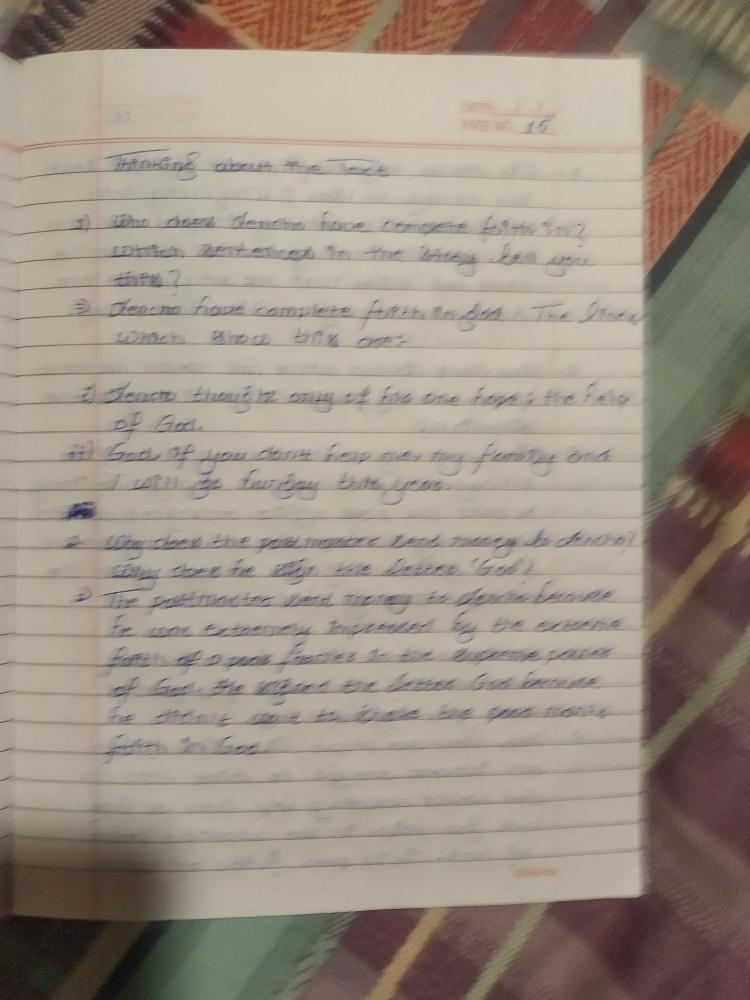 DATE: / /
PAGE NO. 15
Thinking about the Text
1) Who does Lencho have complete faith in?
Which sentences in the story tell you
this?
Lencho have complete faith in God. The lines
which show this are:-
i) Lencho thought only of his one hope: the help
of God.
ii) God if you don't help me, my family and
I will go hungry this year.
2. Why does the postmaster send money to Lencho?
Why does he sign the letter 'God'?
The postmaster send money to Lencho because
he was extremely impressed by the extreme
faith of a poor farmer in the supreme power
of God. He signed the letter God because
he didn't want to shake the poor mans
faith in God.